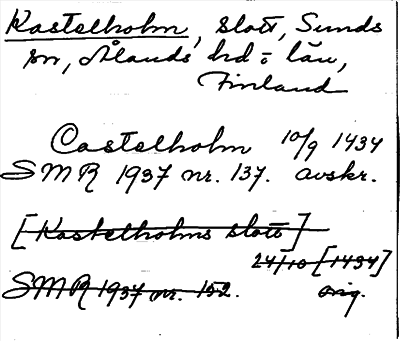 Kastelholm, slott, Sunds
sn, Ålands hd o. län,
Finland
Castelholm 10/9 1434
SMR 1937 nr. 137. avskr.
[Kastelholms slott]
24/10 [1434]
SMR 1937 nr. 152. orig.